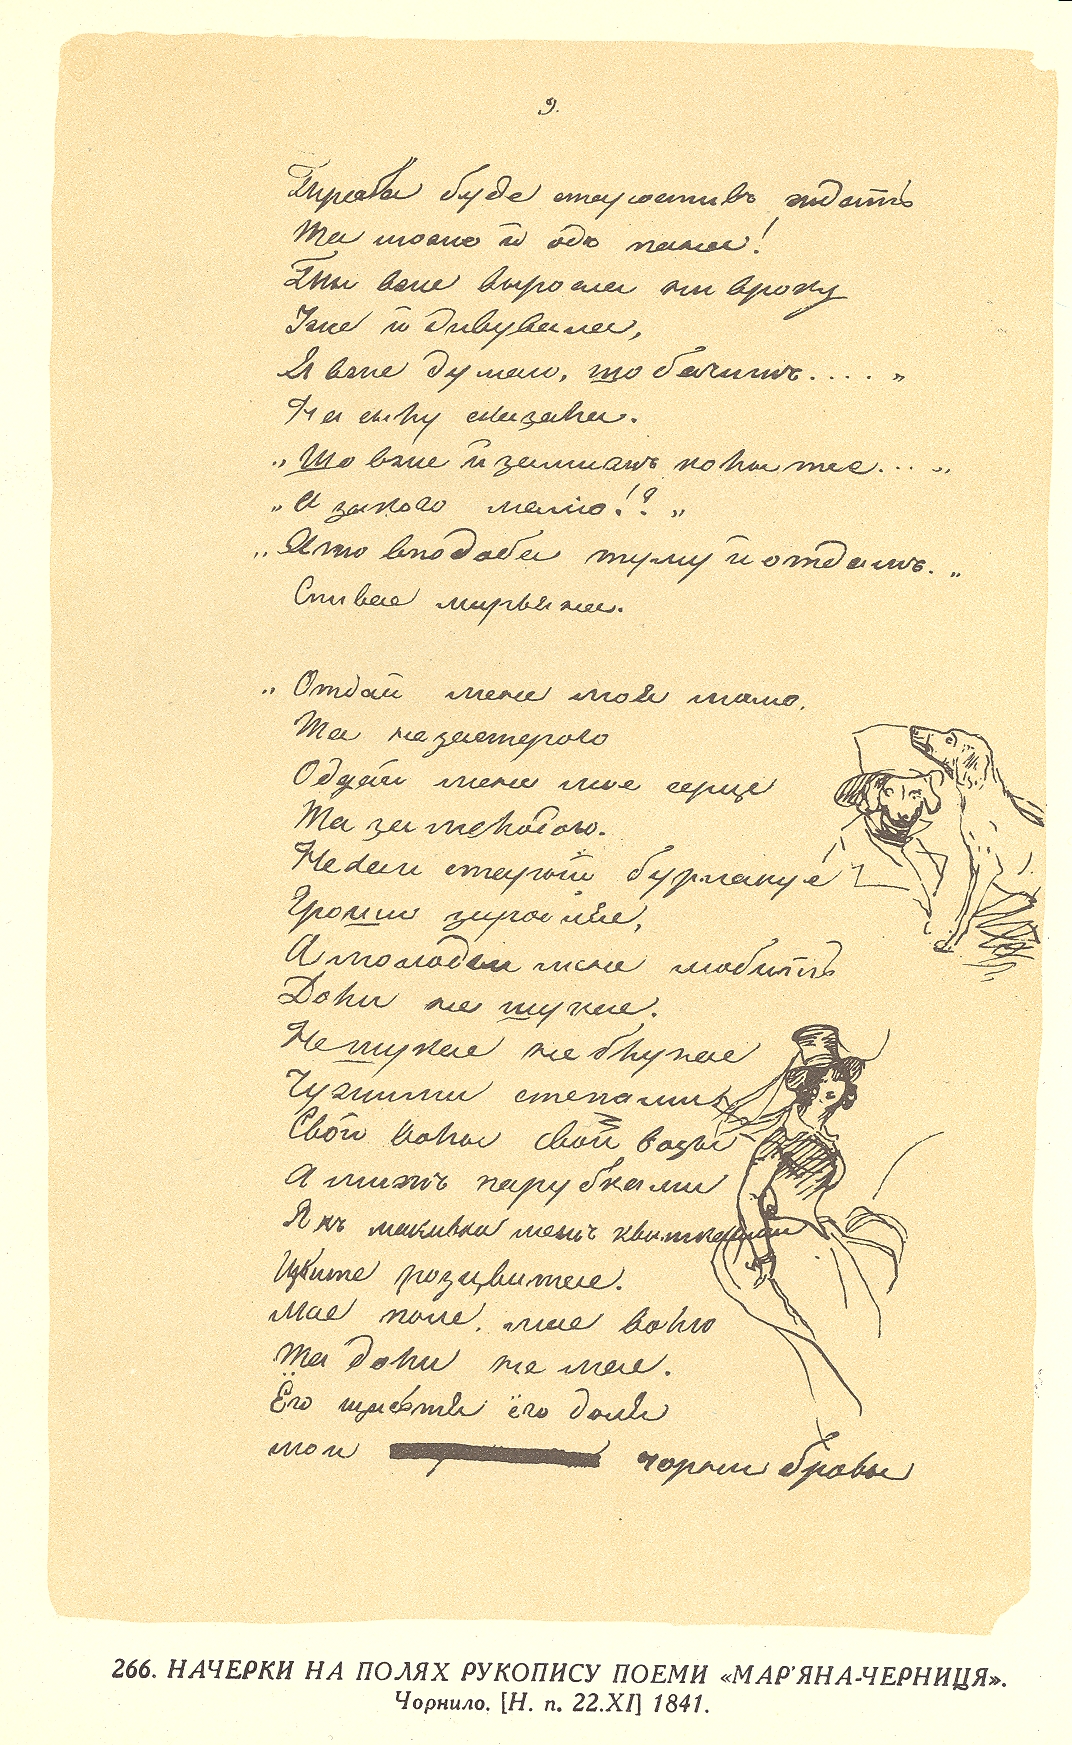 9.
Треба буде старостивъ ждать
Та може й одъ пана!
Ты вже выросла ни вроку
Уже й дивувала,
Я вже думаю, що бачишъ.... „
На силу сказала.
„ Що вже й замижъ коли тее... „
„ А за кого мамо!? „
„ Хто вподоба тому й отдамъ. „
Спивае марьяна.
„ Отдай мене моя мамо,
Та не за старого
Оддай мене мое серце
Та за молодого.
Нехай старый бурлакуе
Гроши заробляе,
А молодый мене любить
Доли не шукае.
Не шукае не блукае
Чужими степами
Свои волы свои возы
А мижъ парубками
Якъ макивка межъ квитками
Цвите розцвитае.
мае поле, мае волю
Та доли не мае.
Ёго щастя ёго доля
мои чорни бровы
266. НАЧЕРКИ НА ПОЛЯХ РУКОПИСУ ПОЕМИ «МАР'ЯНА-ЧЕРНИЦЯ».
Чорнило. [Н. п. 22.XI] 1841.